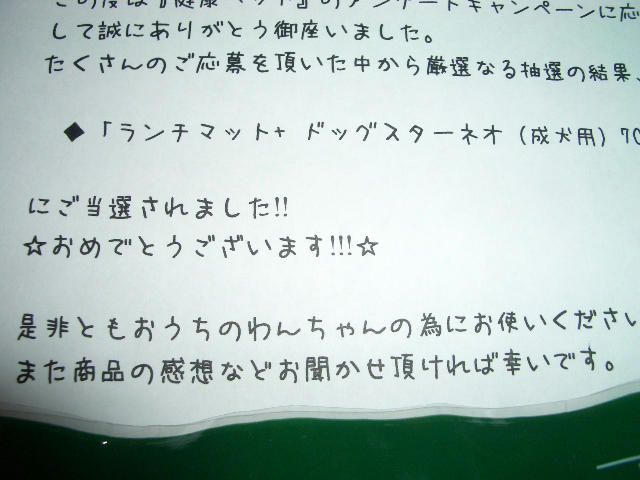 この度は『健康マット』のアンケートキャンペーンに応
して誠にありがとう御座いました。
たくさんのご応募を頂いた中から厳選なる抽選の結果、
◆「ランチマット+ ドッグスターネオ（成犬用）70
にご当選されました!!
☆おめでとうございます!!!☆
是非ともおうちのわんちゃんの為にお使いください
また商品の感想などお聞かせ頂ければ幸いです。